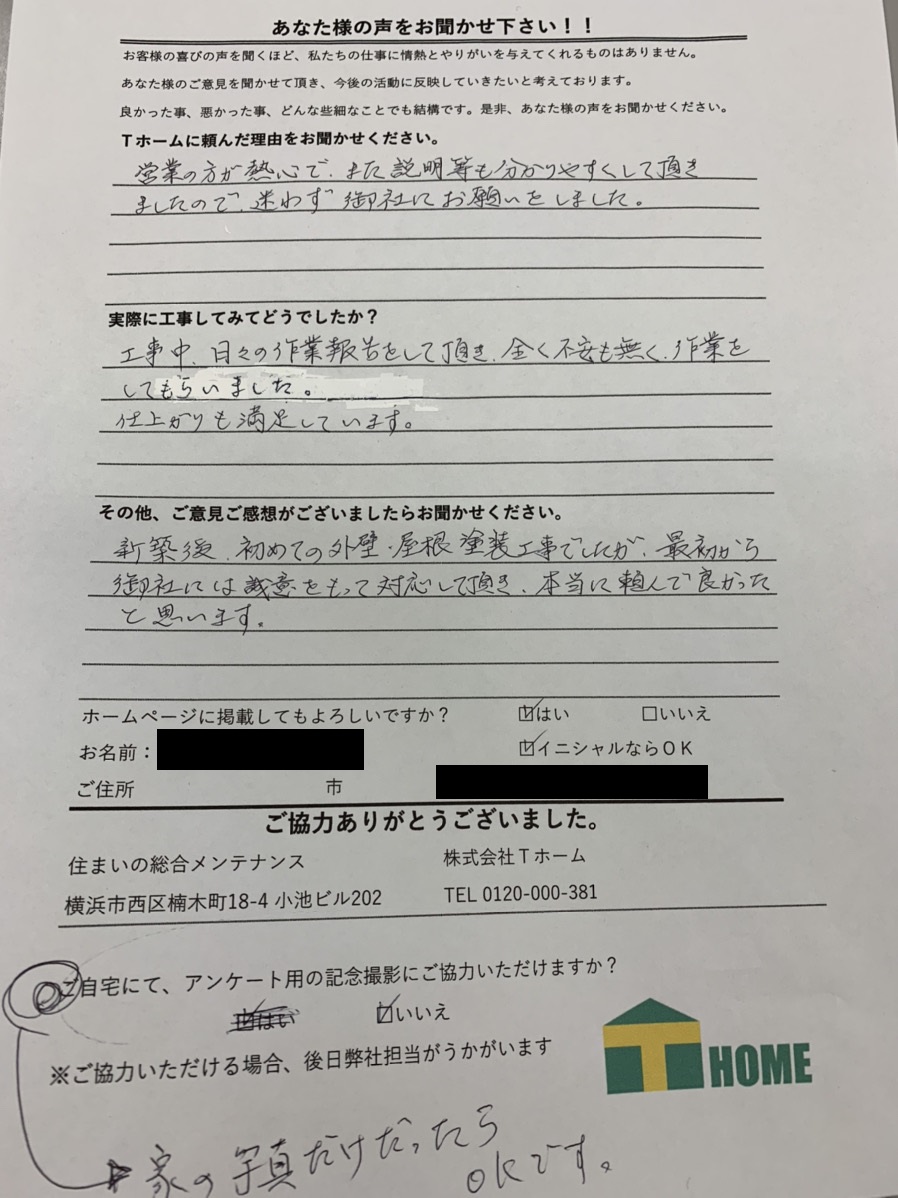 あなた様の声をお聞かせ下さい！！
お客様の喜びの声を聞くほど、私たちの仕事に情熱とやりがいを与えてくれるものはありません。
あなた様のご意見を聞かせて頂き、今後の活動に反映していきたいと考えております。
良かった事、悪かった事、どんな些細なことでも結構です。是非、あなた様の声をお聞かせください。
Ｔホームに頼んだ理由をお聞かせください。
営業の方が熱心で、また説明等も分かりやすくして頂き
ましたので、迷わず御社にお願いをしました。
実際に工事してみてどうでしたか？
工事中、日々の作業報告をして頂き、全く不安も無く、作業を
してもらいました。
仕上がりも満足しています。
その他、ご意見ご感想がございましたらお聞かせください。
新築後、初めての外壁・屋根塗装工事でしたが、最初から
御社には誠意をもって対応して頂き、本当に頼んで良かった
と思います。
ホームページに掲載してもよろしいですか？ ☑はい □いいえ
お名前： ☑イニシャルならＯＫ
ご住所 市
ご協力ありがとうございました。
住まいの総合メンテナンス 株式会社Ｔホーム
横浜市西区楠木町18-4 小池ビル202 TEL 0120-000-381
ご自宅にて、アンケート用の記念撮影にご協力いただけますか？
☑はい ☑いいえ
※ご協力いただける場合、後日弊社担当がうかがいます
T HOME
家の写真だけだったら
OKです。